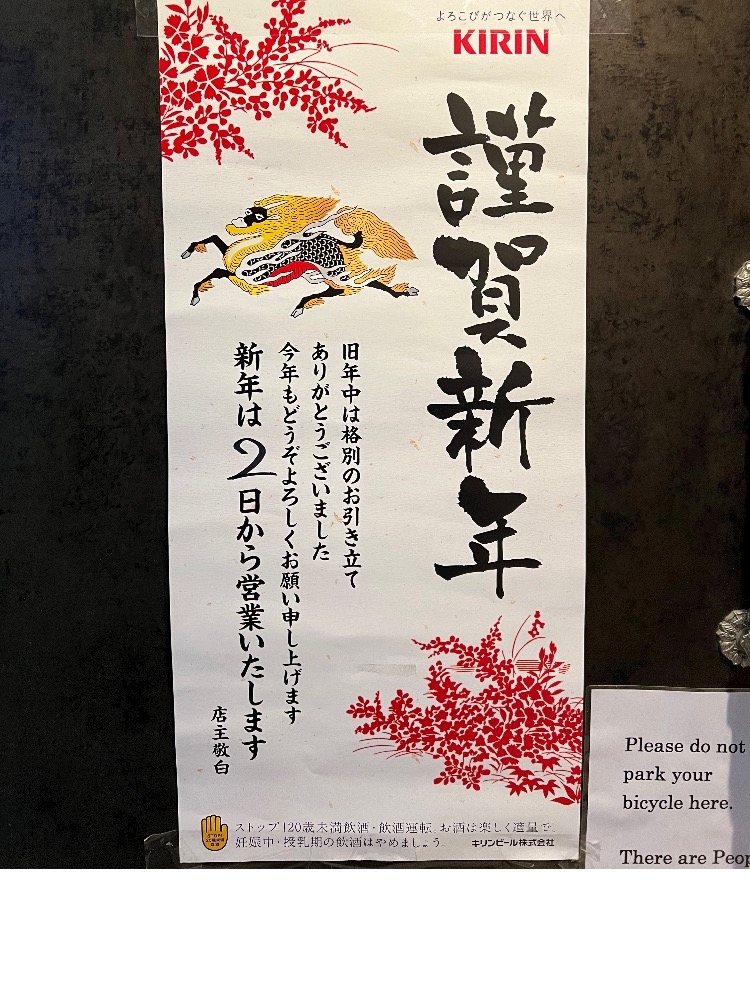 よろこびがつなぐ世界へ
KIRIN
謹賀新年
旧年中は格別のお引き立て
ありがとうございました
今年もどうぞよろしくお願い申し上げます
新年は2日から営業いたします
店主敬白
ストップ!20歳未満飲酒・飲酒運転。お酒は楽しく適量で。
妊娠中・授乳期の飲酒はやめましょう。
キリンビール株式会社
Please do not
park your
bicycle here.
There are Peop